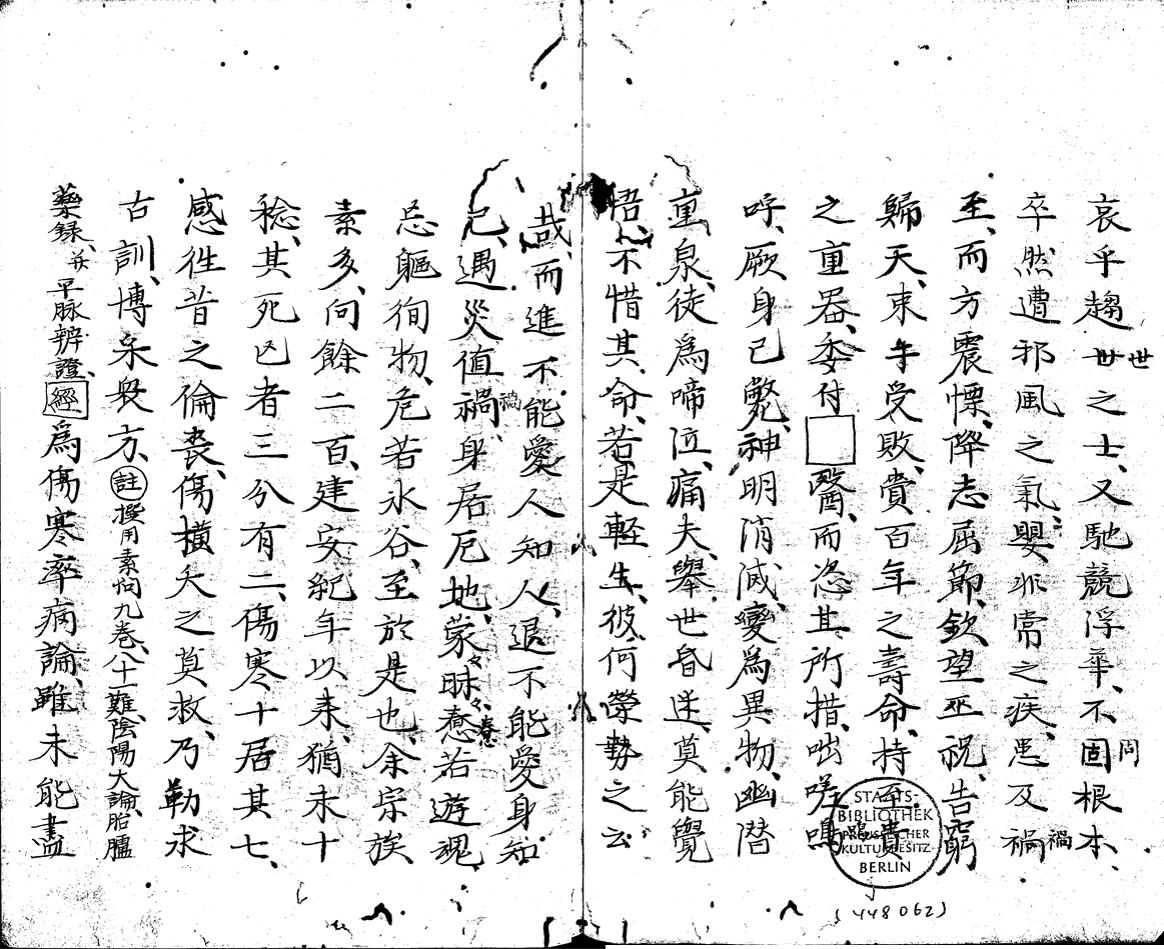 哀乎趨世之士、又馳競浮華、不固根本、
世
固
卒然遭邪風之氣、嬰非常之疾、患及禍
禍
至、而方震慄、降志屈節、欽望巫祝、告窮
歸天、束手受敗、賚百年之壽命、持至貴
之重器、委付醫、而恣其所措、咄嗟嗚
呼、厥身已斃、神明消滅、變爲異物、幽潛
重泉、徒爲啼泣、痛夫、舉世昏迷、莫能覺
悟、不惜其命、若是輕生、彼何榮勢之云
哉、而進不能愛人知人、退不能愛身知
己、遇災値禍、身居厄地、蒙々昧々、惷若遊魂、
禍
惷
忘軀徇物、危若氷谷、至於是也、余宗族
素多、向餘二百、建安紀年以来、猶未十
稔、其死亡者三分有二、傷寒十居其七、
感徃昔之倫喪、傷橫夭之莫救、乃勤求
古訓、博采衆方、註撰用素問九巻、八十一難、陰陽大論、胎臚
藥録、并平脉辨證、經爲傷寒卒病論、雖未能盡
STAATS-
BIBLIOTHEK
PREUSSISCHER
KULTURBESITZ
BERLIN
(448062)